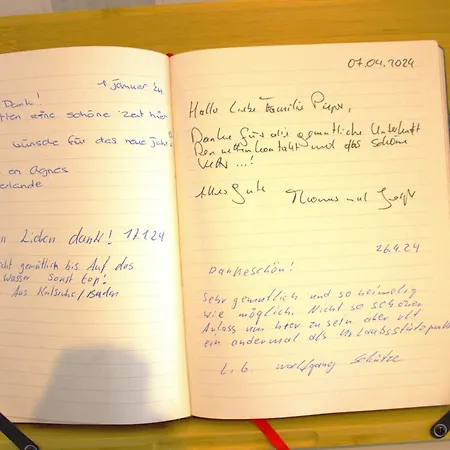 1 Januar 24
Dank!
tten eine schöne Zeit hier
wünsche für das neue Jahr
en Agnes
erlande
n Liden dank! 17.1.24
cht gemütlich bis Auf das
Wasser sonst top!
Aus Karlsruhe/Baden
07.04.2024
Hallo Liebe Familie
Danke für die gemütliche Unterkunft
Den netten Kontakt und das schöne
Wetter...!
Alles Gute Thomas und
26.4.24
Dankeschön!
Sehr gemütlich und so heimelig
wie möglich. Nicht so schöner
Anlass um hier zu sein aber vlt
ein andermal als Urlaubsstützpunkt
L.G. Wolfgang Schütze